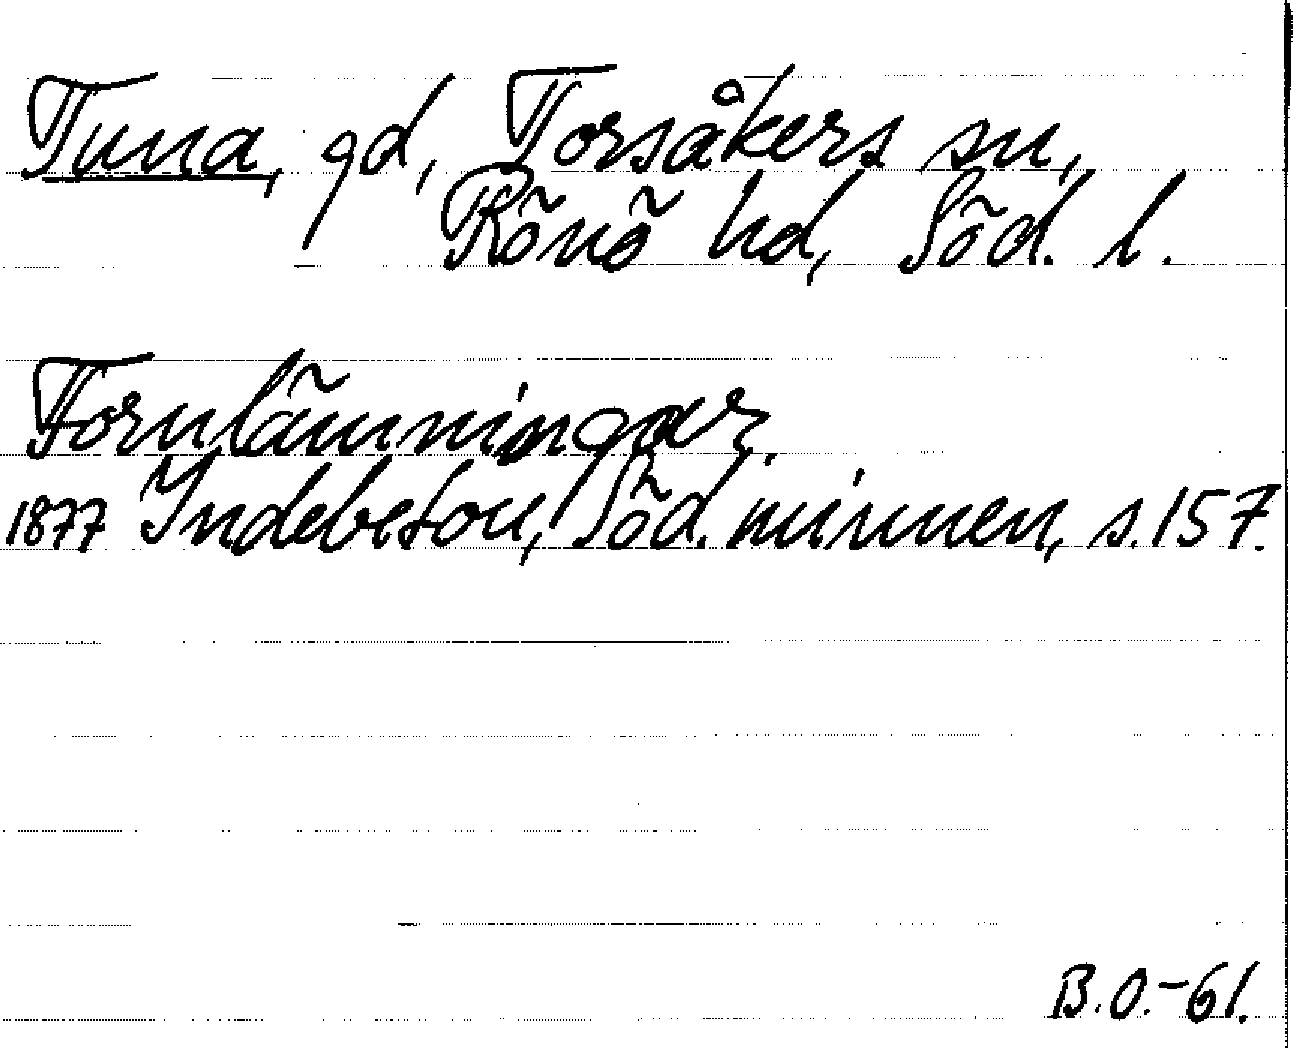 Tuna, gd, Torsåkers sn,
Rönö hd, Söd. l.
Fornlämningar.
1877 Indebetou, Söd. minnen, s. 157.
B.O.-61.